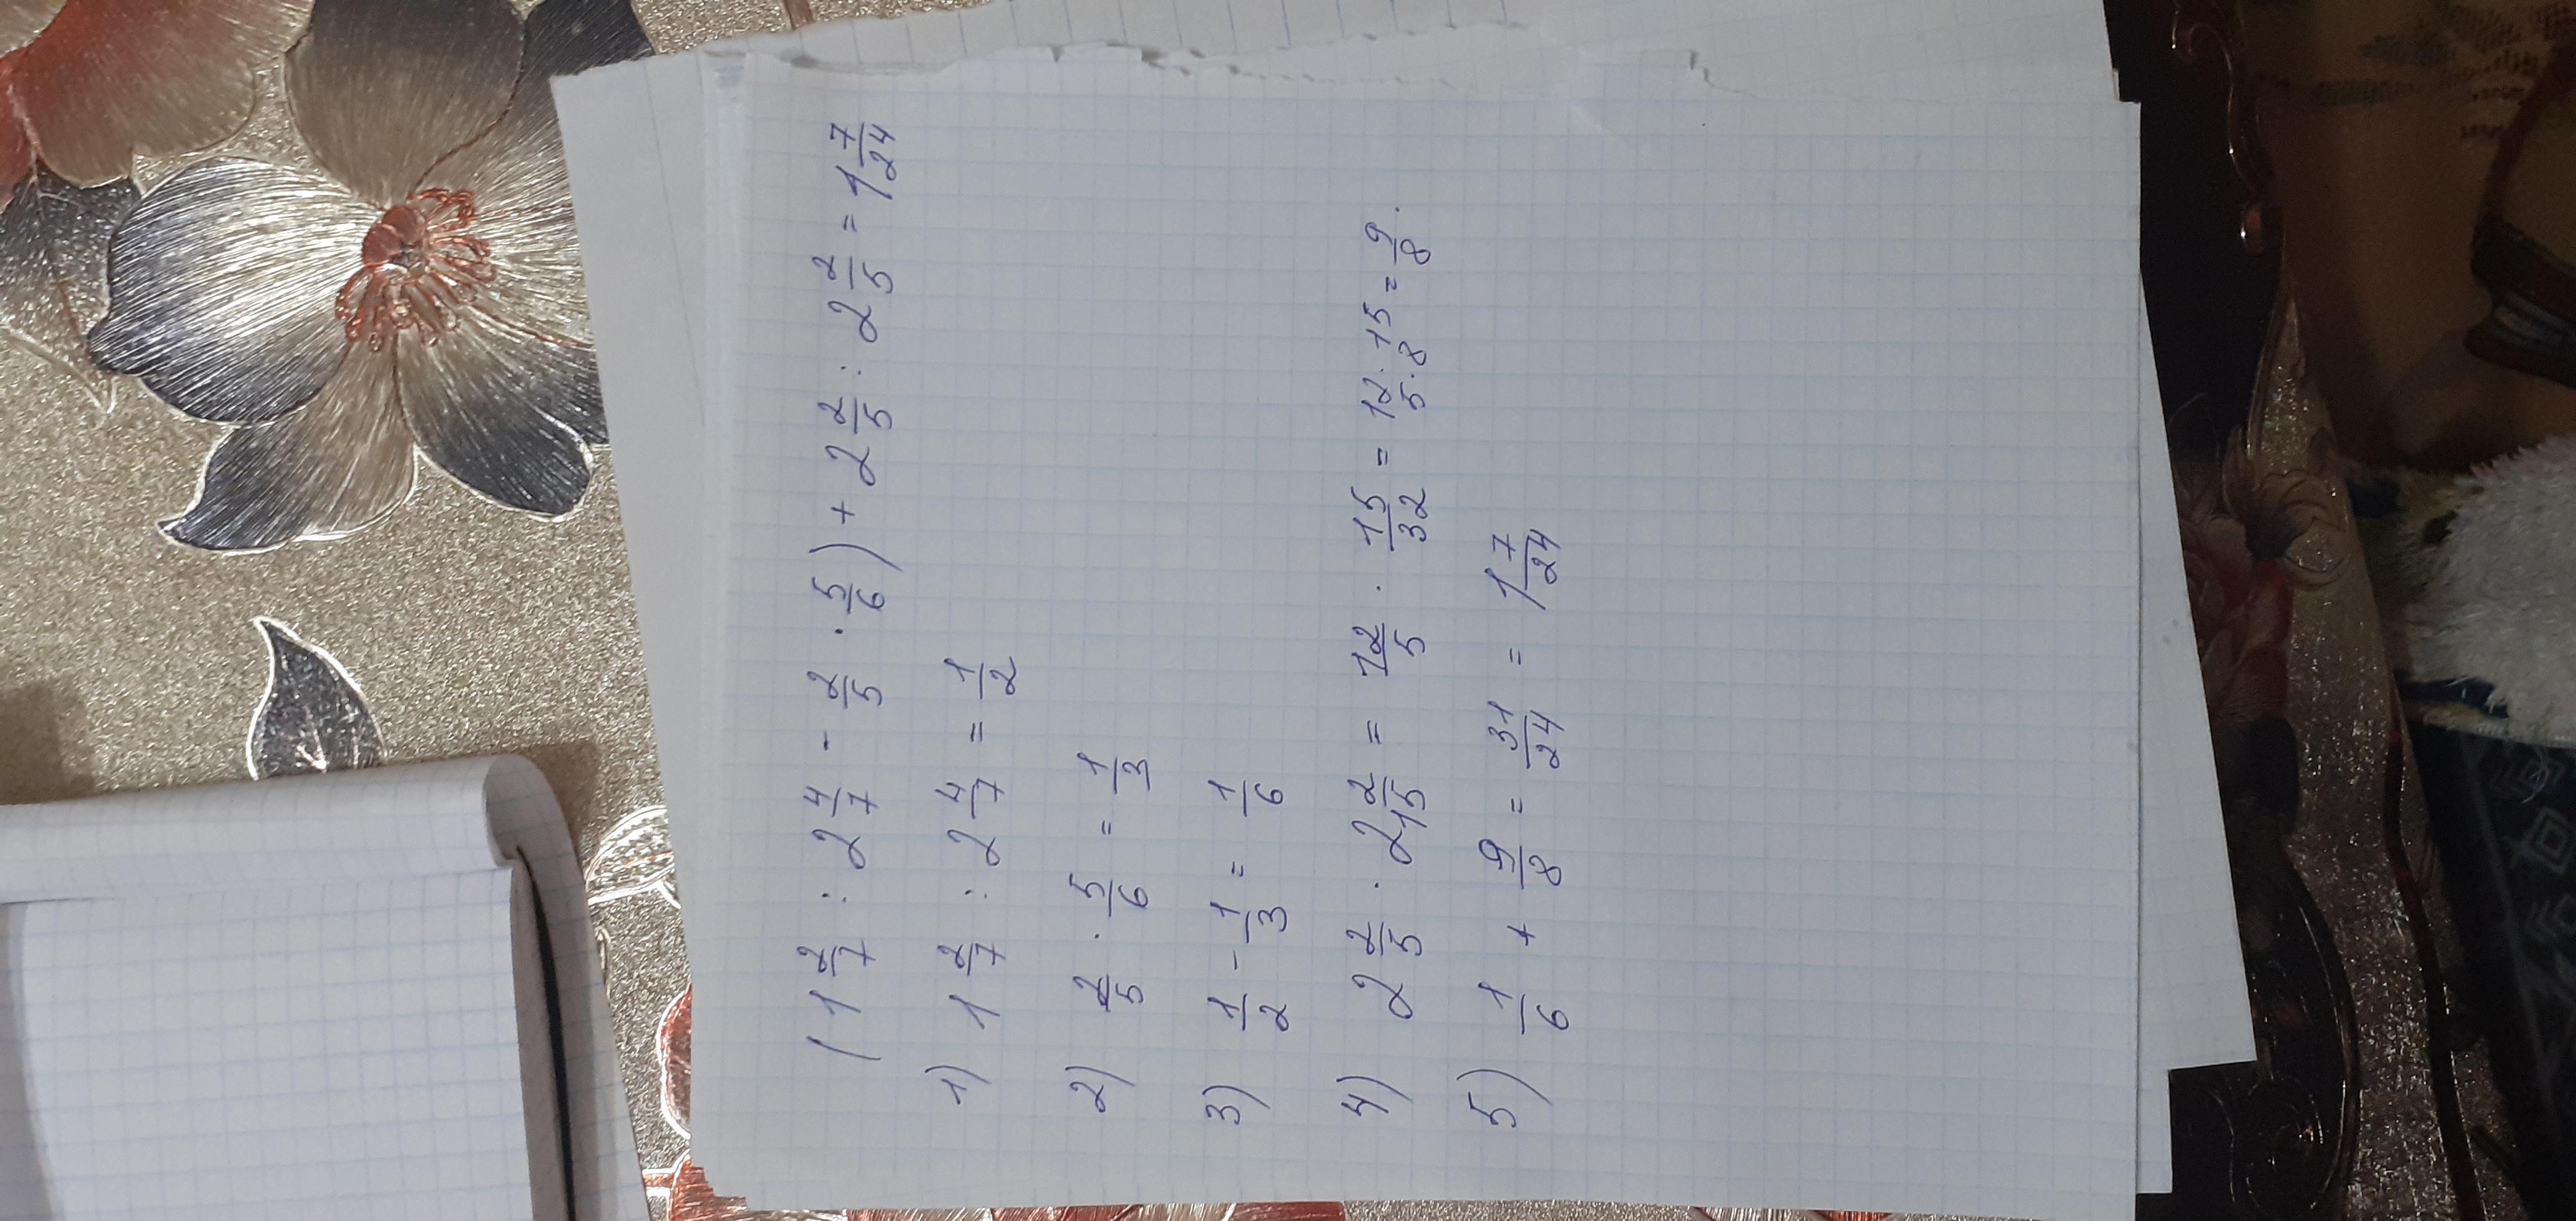 (1 2/7 : 2 4/7 - 2/5 · 5/6) + 2 2/5 : 2 2/5 = 1 7/24
1) 1 2/7 : 2 4/7 = 1/2
2) 2/5 · 5/6 = 1/3
3) 1/2 - 1/3 = 1/6
4) 2 2/5 · 2 2/15 = 12/5 · 15/32 = 12·15/5·8 = 9/8.
5) 1/6 + 9/8 = 31/24 = 1 7/24